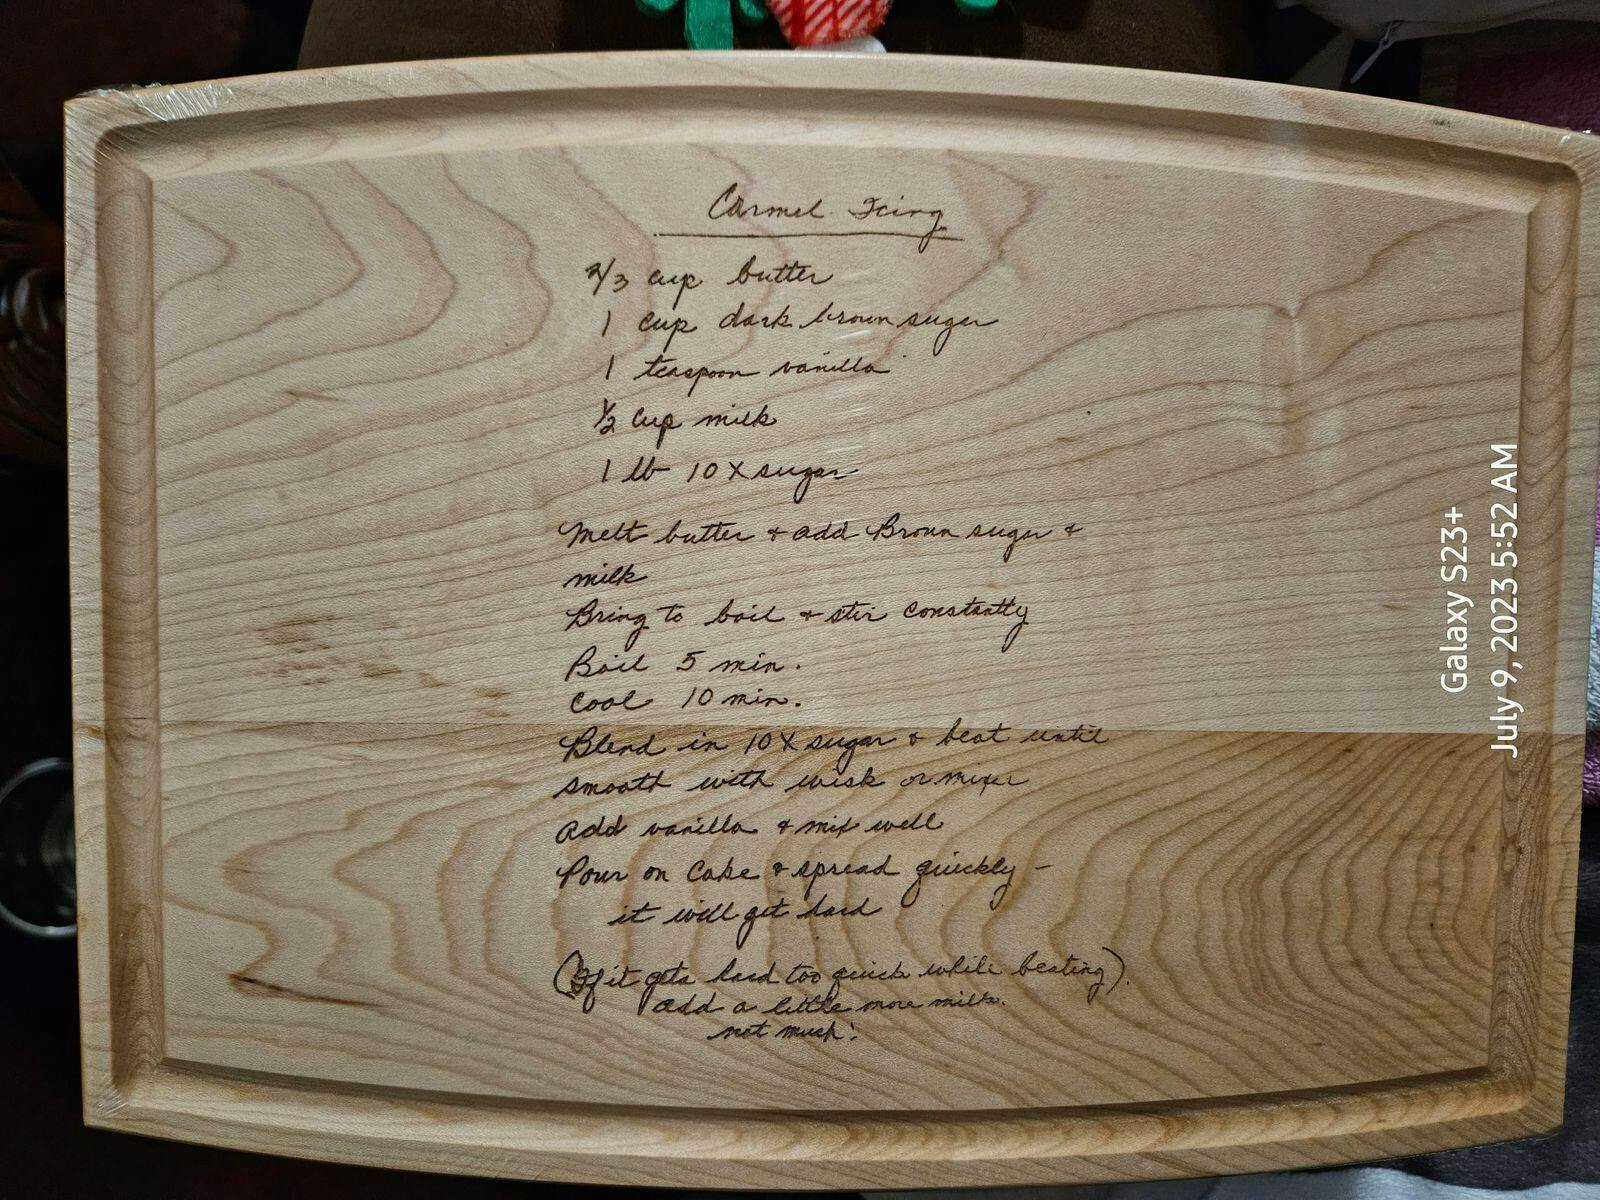 Carmel Icing
2/3 cup butter
1 cup dark brown sugar
1 teaspoon vanilla
1/2 cup milk
1 lb 10X sugar
Melt butter + add Brown sugar +
milk
Bring to boil + stir constantly
Boil 5 min.
Cool 10 min.
Blend in 10X sugar & beat until
smooth with wisk or mixer
add vanilla & mix well
Pour on Cake & spread quickly -
it will get hard
(If it gets hard too quick while beating).
add a little more milk.
not much!
Galaxy S23+
July 9, 2023 5:52 AM